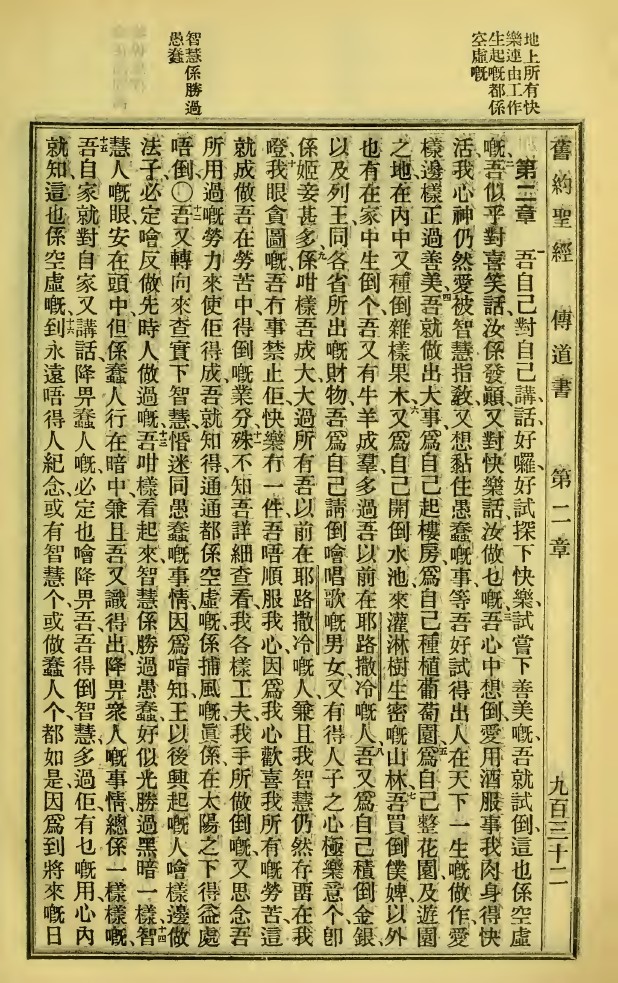 地上所有快
樂連由工作
生起嘅都係
空虛嘅
智慧係勝過
愚蠢
舊約聖經 傳道書 第二章 九百三十二
第二章 一吾自己對自己講話、好囉、好試探下快樂、試嘗下善美嘅、吾就試倒、這也係空虛
嘅、二吾似乎對喜笑話、汝係發顚、又對快樂話、汝做乜嘅、三吾心中想倒、愛用酒服事我肉身得快
活、我心神仍然愛被智慧指教、又想黏住愚蠢嘅事、等吾好試得出人在天下一生嘅做作、愛
樣邊樣正過善美、四吾就做出大事、爲自己起樓房、爲自己種植葡萄園、五爲自己整花園及遊園
之地、在內中又種倒雜樣果木、六又爲自己開倒水池、來灌淋樹生密嘅山林、七吾買倒僕婢、以外
也有在家中生倒个、吾又有牛羊成羣、多過吾以前在耶路撒冷嘅人、八吾又爲自己積倒金銀、
以及列王同各省所出嘅財物、吾爲自己請倒噲唱歌嘅男女、又有得人子之心極樂意个、卽
係姬妾甚多、九係咁樣吾成大、大過所有吾以前在耶路撒冷嘅人、兼且我智慧仍然存畱在我、
十噔我眼貪圖嘅、吾冇事禁止佢、快樂冇一件吾唔順服我心、因爲我心歡喜我所有嘅勞苦、這
就成做吾在勞苦中得倒嘅業分、十一殊不知吾詳細查看我各樣工夫、我手所做倒嘅、又思念吾
所用過嘅勞力、來使佢得成、吾就知得通通都係空虛嘅、係捕風嘅、眞係在太陽之下得益處
唔倒〇十二吾又轉向來查實下智慧、惛迷同愚蠢嘅事情、因爲喑知王以後興起嘅人、噲樣邊做
法子、必定噲反做先時人做過嘅、十三吾咁樣看起來、智慧係勝過愚蠢、好似光勝過黑暗一樣、十四智
慧人嘅眼安在頭中、但係蠢人行在暗中、兼且吾又識得出、降畀衆人嘅事情總係一樣樣嘅、
十五吾自家就對自家又講話、降畀蠢人嘅必定也噲降畀吾、吾得倒智慧多過佢有乜嘅用、心內
就知這也係空虛嘅、十六到永遠唔得人紀念、或有智慧个、或做蠢人个、都如是、因爲到將來嘅日